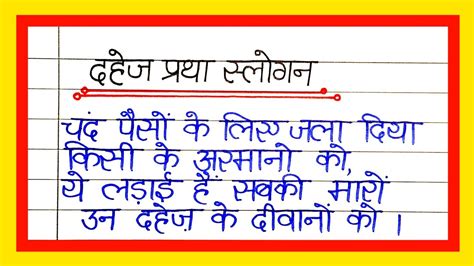 दहेज प्रथा स्लोगन
चंद पैसों के लिए जला दिया
किसी के अरमानो को,
ये लड़ाई हैं सबकी मारों
उन दहेज़ के दीवानों को ।